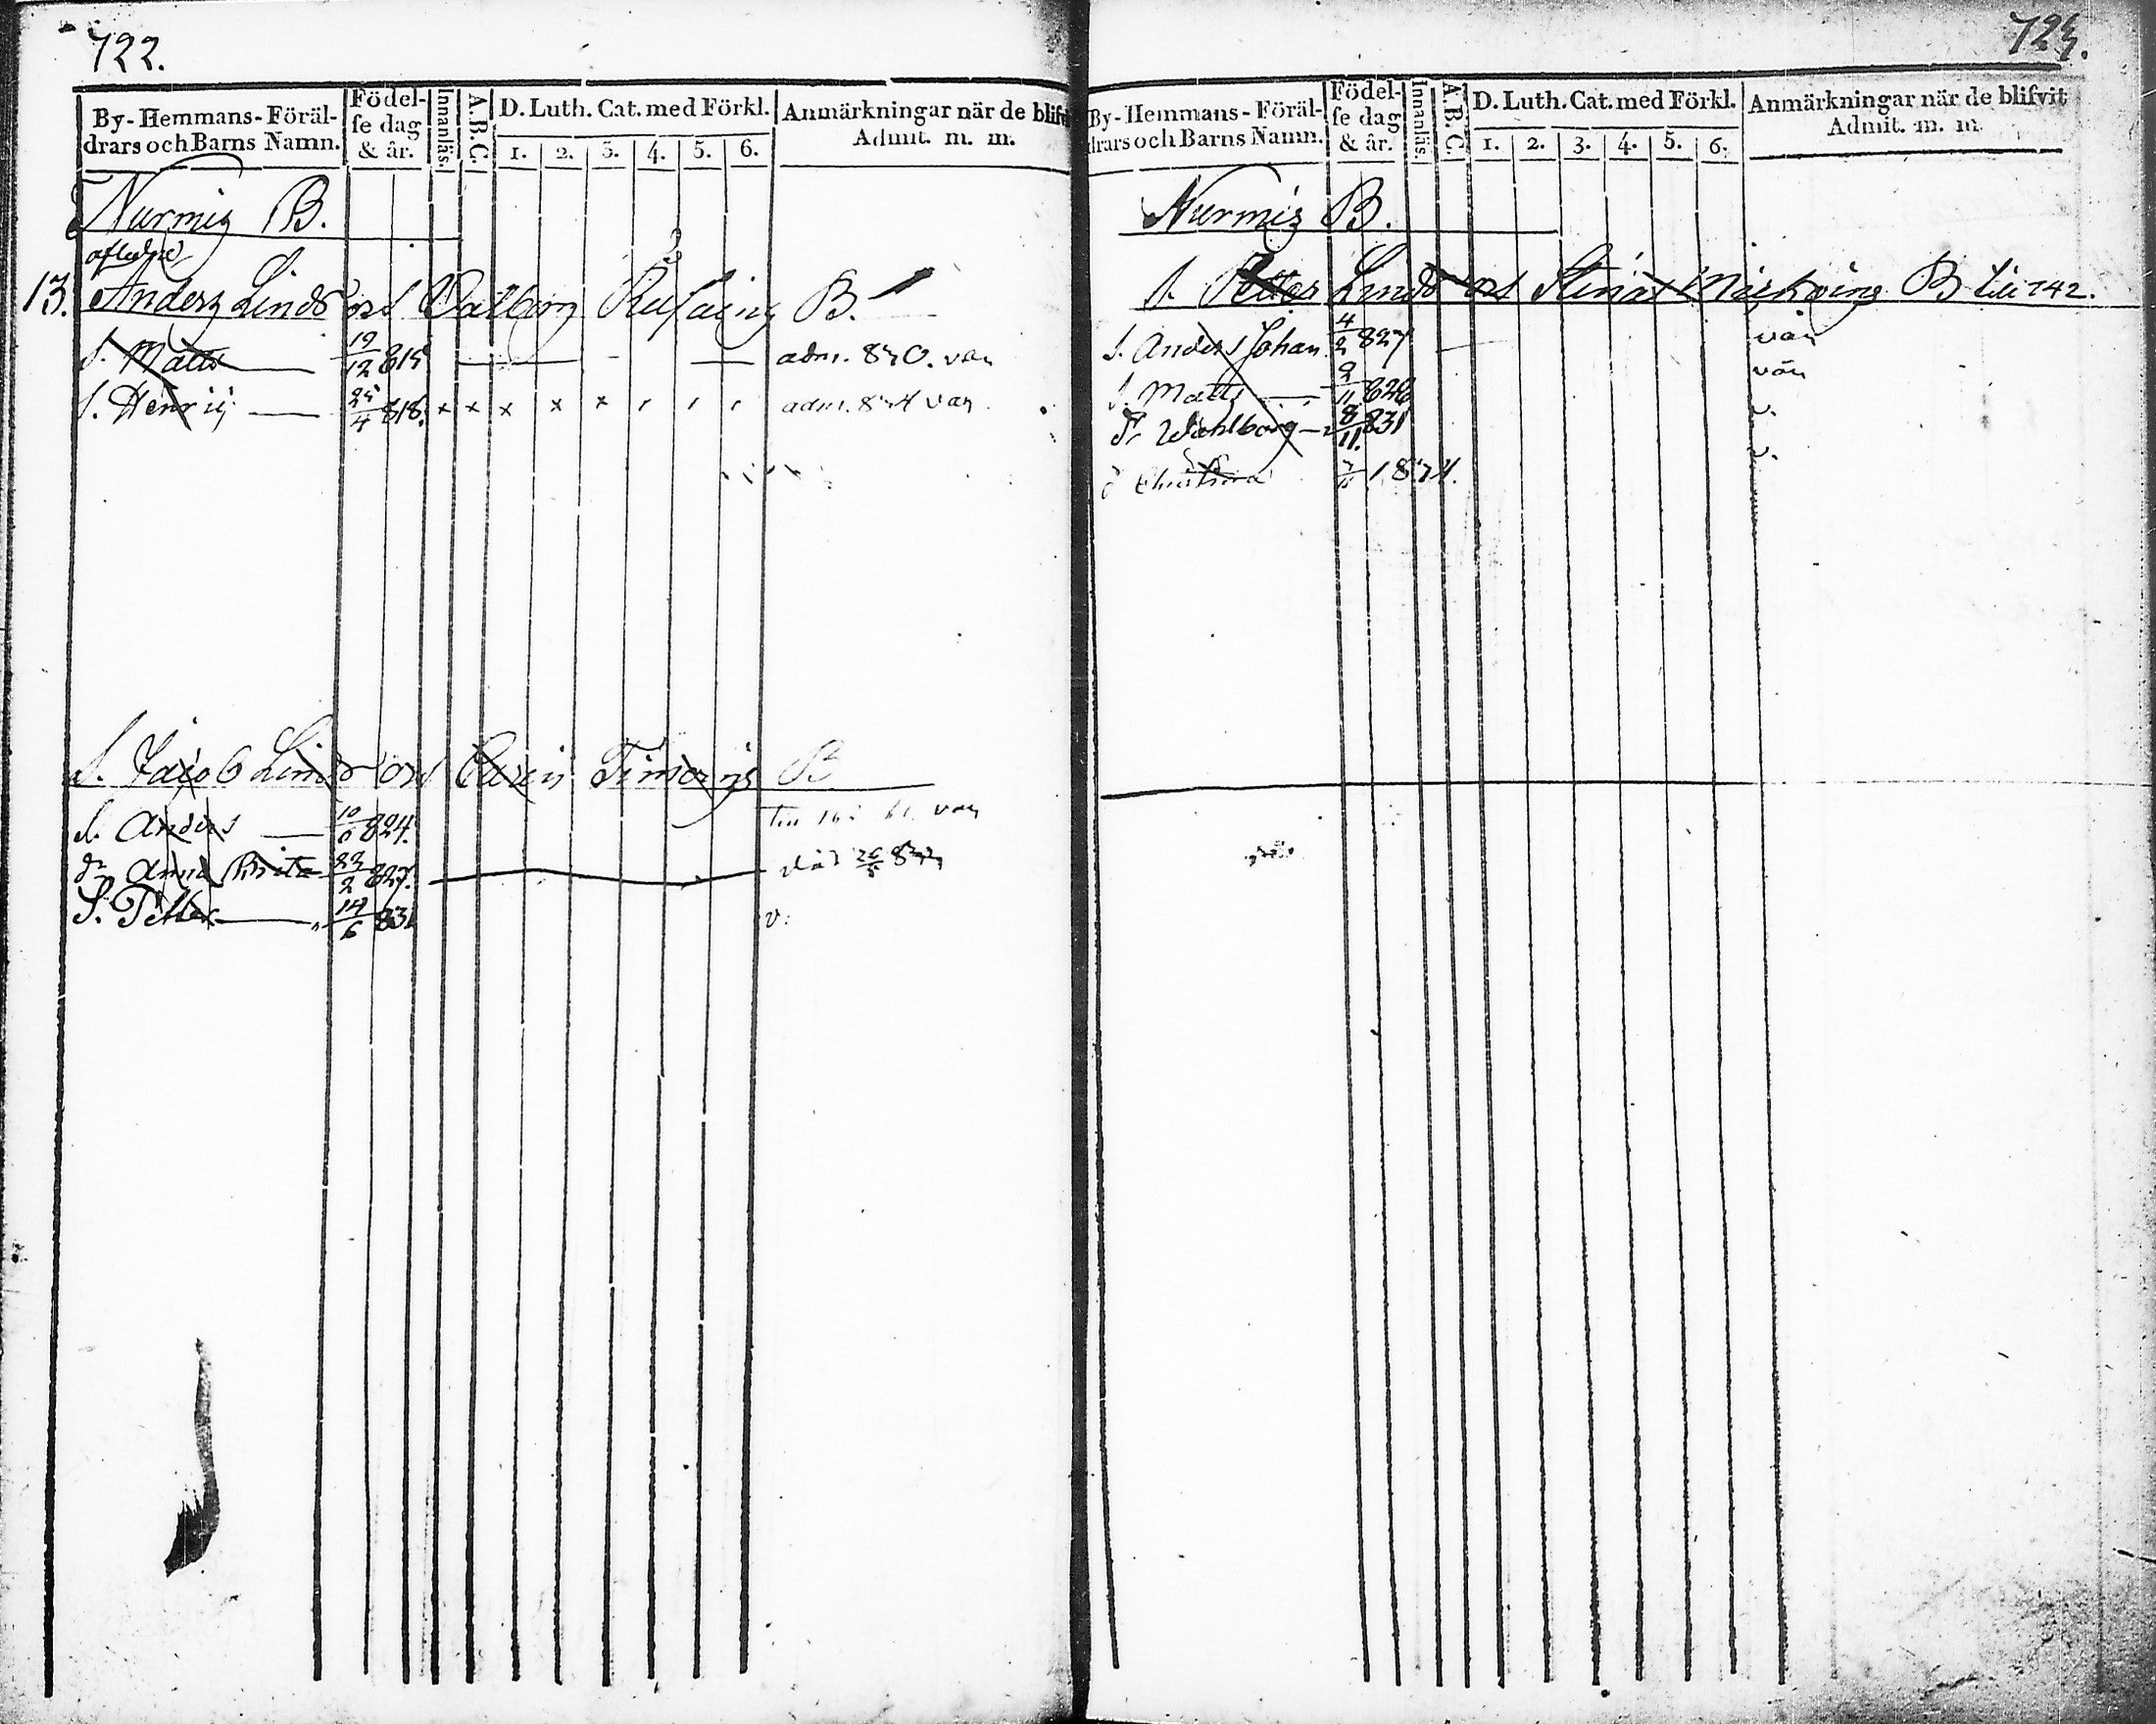 722.
By-Hemmans-Föräl-
drars och Barns Namn.
Födel-
se dag
& år.
Innanläs.
A.B.C.
D. Luth. Cat. med Förkl.
1. 2. 3. 4. 5. 6.
Anmärkningar när de blifv
Admit. m. m.
Nurmis B.
afledne
13. Anders Lindros Valborg B.
S. Matts 19/12 815 adm. 830. van
S. Henric 25/4 818. x x x x x adm. 834 van
S. Jacob Lindros Carin B
S. Anders 10/6 824. van
dr Anna Brita 23/2 827. död
S. Petter 14/6 831 v:
723.
By-Hemmans-Föräl-
drars och Barns Namn.
Födel-
se dag
& år.
Innanläs.
A.B.C.
D. Luth. Cat. med Förkl.
1. 2. 3. 4. 5. 6.
Anmärkningar när de blifvit
Admit. m. m.
Nurmis B.
S. Petter Lindros Stina B 742.
S. Anders Johan 4/2 827 van
S. Matts van
dr Wahlborg 8/11 831 v.
d Christina 1834. v.